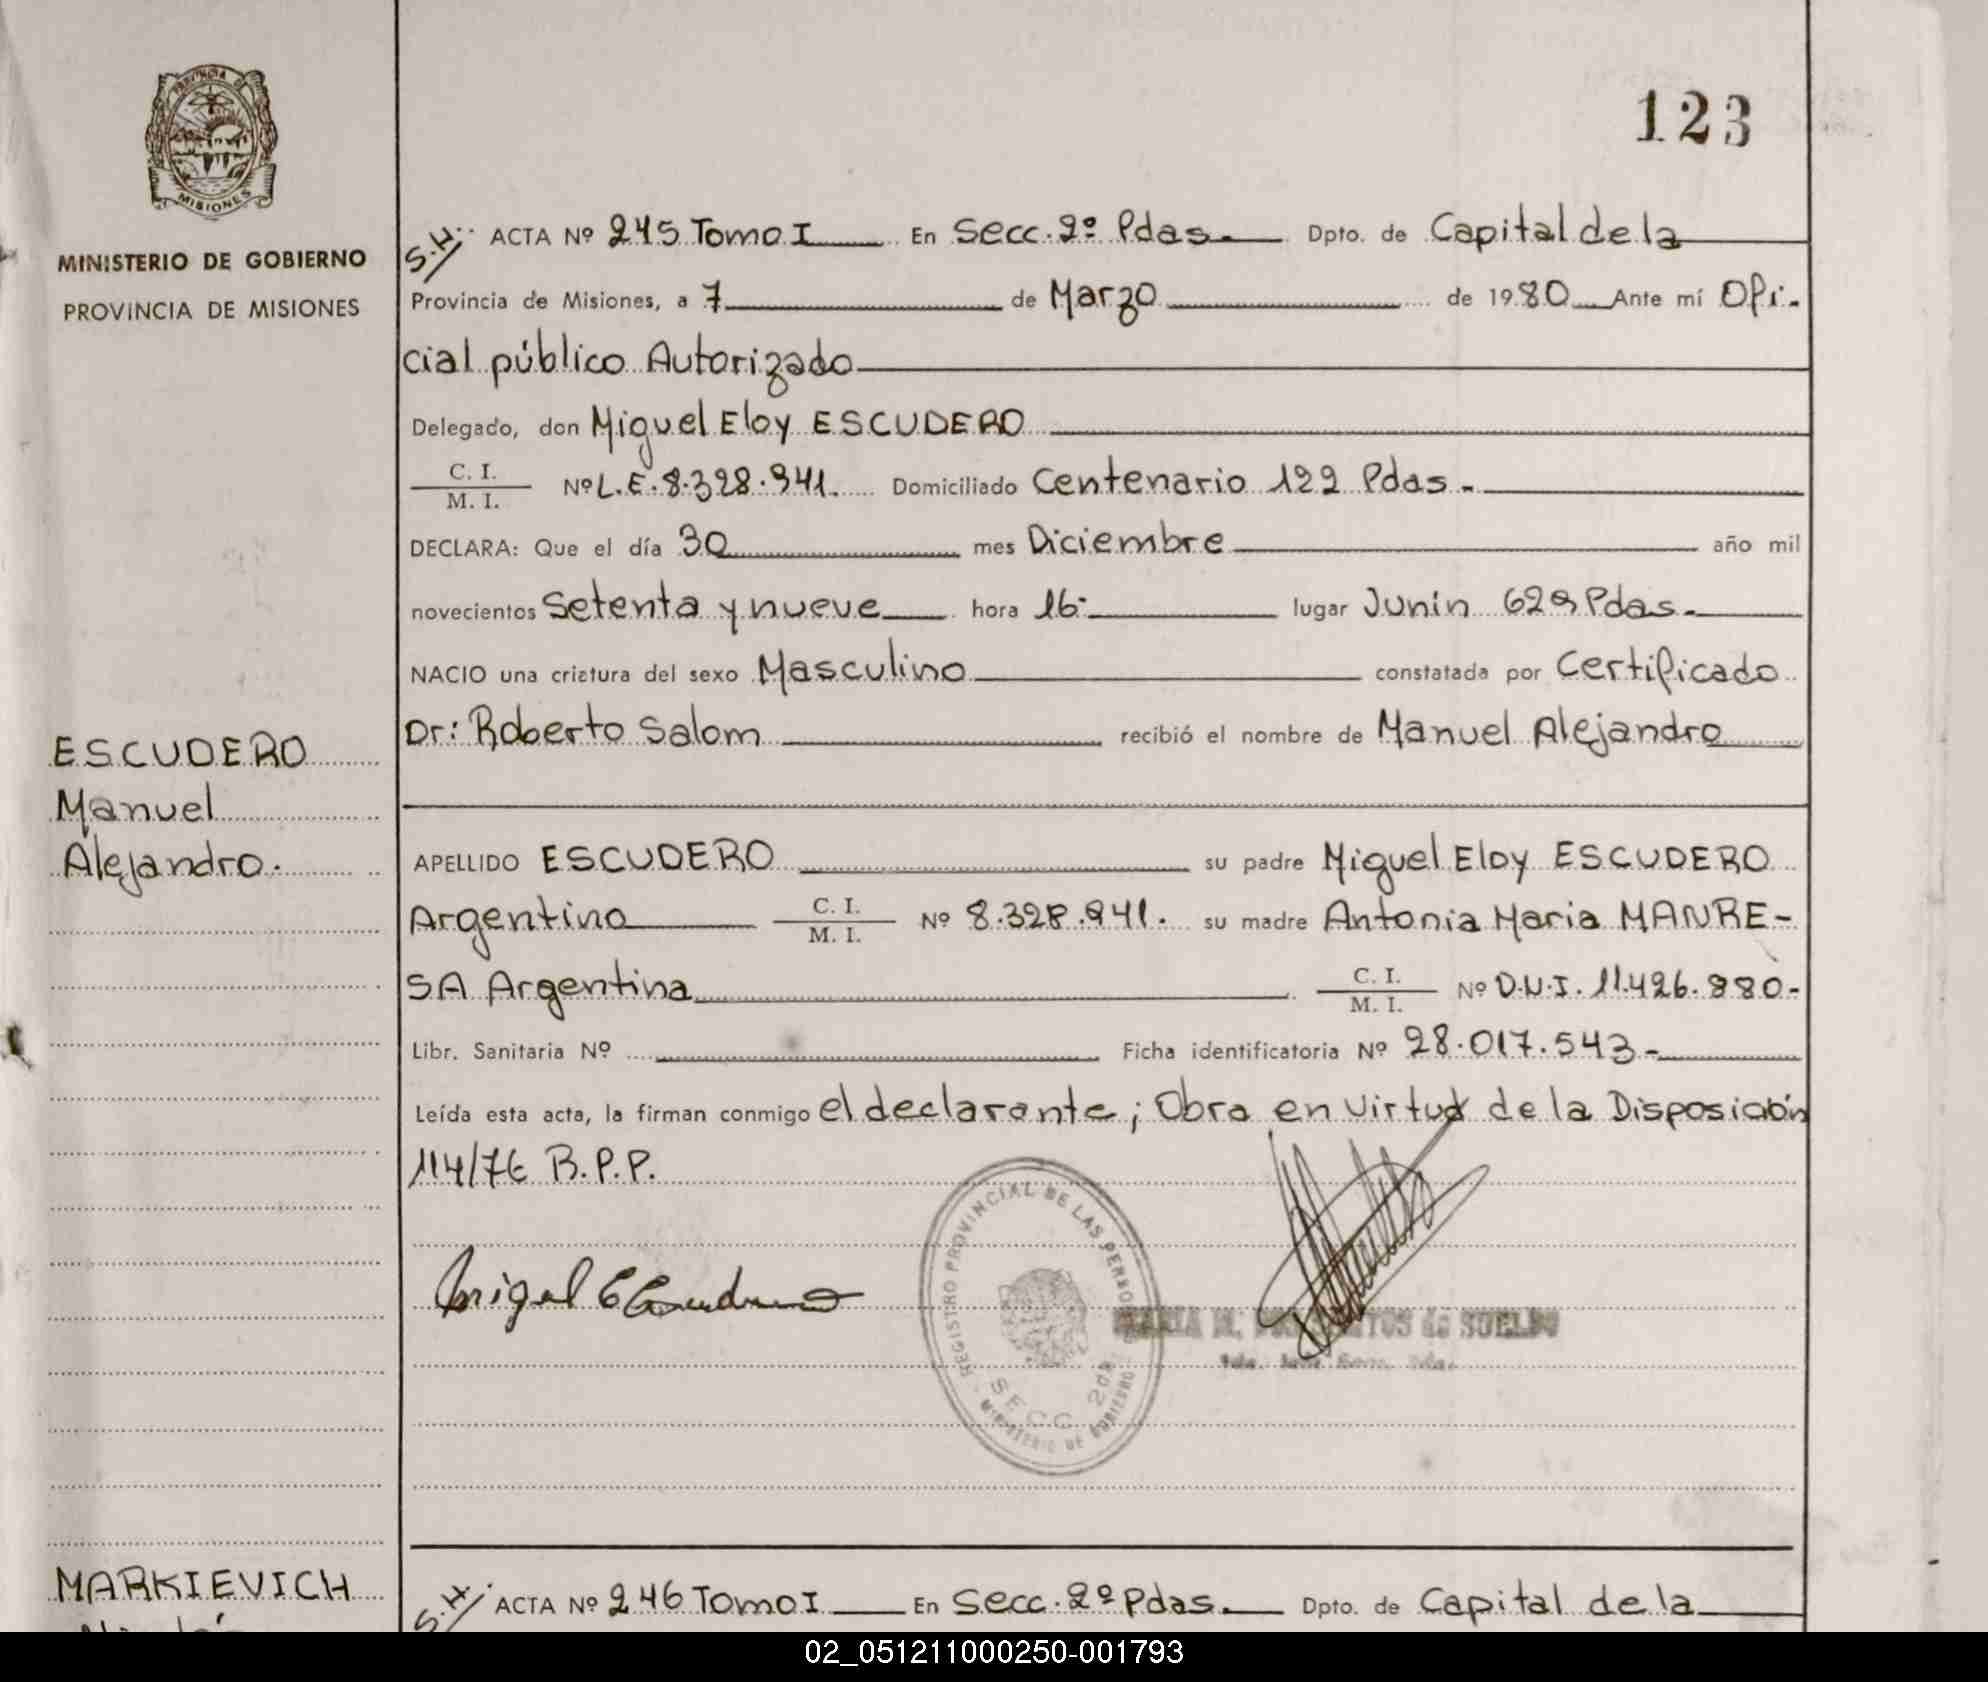 PROVINCIA DE
MISIONES
MINISTERIO DE GOBIERNO
PROVINCIA DE MISIONES
123
S.H. ACTA Nº 245 Tomo I En Secc. 2º Pdas. Dpto. de Capital de la
Provincia de Misiones, a 7 de Marzo de 1980 Ante mí Ofi-
cial público Autorizado
Delegado, don Miguel Eloy ESCUDERO
C. I.
M. I. Nº L.E. 8.328.941. Domiciliado Centenario 122 Pdas.
DECLARA: Que el día 30 mes Diciembre año mil
novecientos Setenta y nueve hora 16 lugar Junin 629 Pdas.
NACIO una criatura del sexo Masculino constatada por Certificado
Dr: Roberto Salom recibió el nombre de Manuel Alejandro
ESCUDERO
Manuel
Alejandro.
APELLIDO ESCUDERO su padre Miguel Eloy ESCUDERO
Argentino C. I. M. I. Nº 8.328.941. su madre Antonia Maria MANRE-
SA Argentina C. I. M. I. Nº D.N.I. 11.426.880-
Libr. Sanitaria Nº Ficha identificatoria Nº 28.017.543-
Leída esta acta, la firman conmigo el declarante; Obra en virtud de la Disposición
114/76 R.P.P.
Miguel E Escudero
REGISTRO PROVINCIAL DE LAS PERSONAS
SECC. 2da
MINISTERIO DE GOBIERNO
MARIA M. de SUELDO
MARKIEVICH
S.H. ACTA Nº 246 Tomo I En Secc. 2º Pdas. Dpto. de Capital de la
02_051211000250-001793